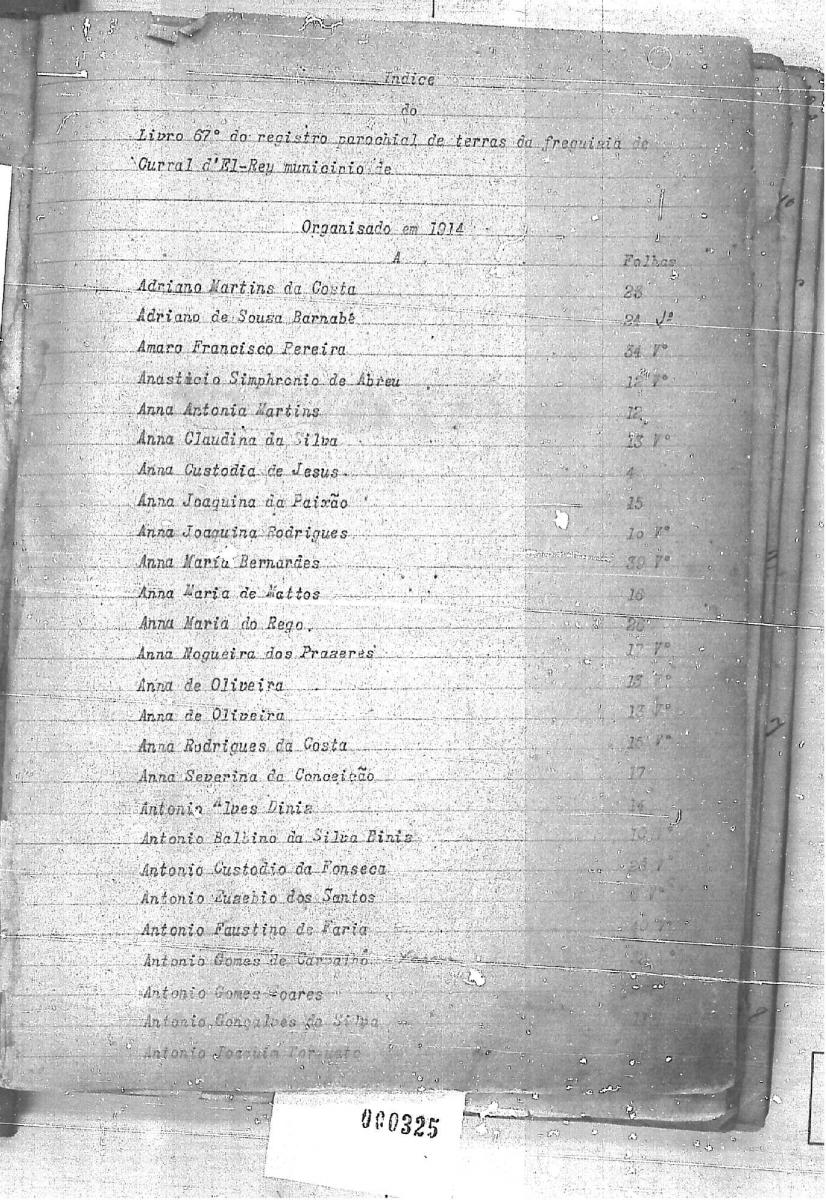 Indice
do
Livro 67° do registro parochial de terras da freguizia de
Curral d'El-Rey municipio de
Organisado em 1914
A Folhas
Adriano Martins da Costa 23
Adriano de Souza Barnabé 24 Vº
Amaro Francisco Pereira 34 V°
Anastácio Simphronio de Abreu 12 V°
Anna Antonia Martins 12
Anna Claudina da Silva 13 V°
Anna Custodia de Jesus 4
Anna Joaquina da Paixão 15
Anna Joaquina Rodrigues 10 V°
Anna Maria Bernardes 39 V°
Anna Maria de Mattos 16
Anna Maria do Rego.
Anna Nogueira dos Prazeres 17 V°
Anna de Oliveira 13 V°
Anna de Oliveira 13 V°
Anna Rodrigues da Costa 15 V°
Anna Severina da Conceição 17
Antonio Alves Diniz 14
Antonio Balbino da Silva Diniz
Antonio Custodio da Fonseca V°
Antonio Euzebio dos Santos V°
Antonio Faustino de Faria
Antonio Gomes de Carvalho
Antonio Gomes Soares
Antonio Gonçalves da Silva
Antonio Joaquim Torquato
000325